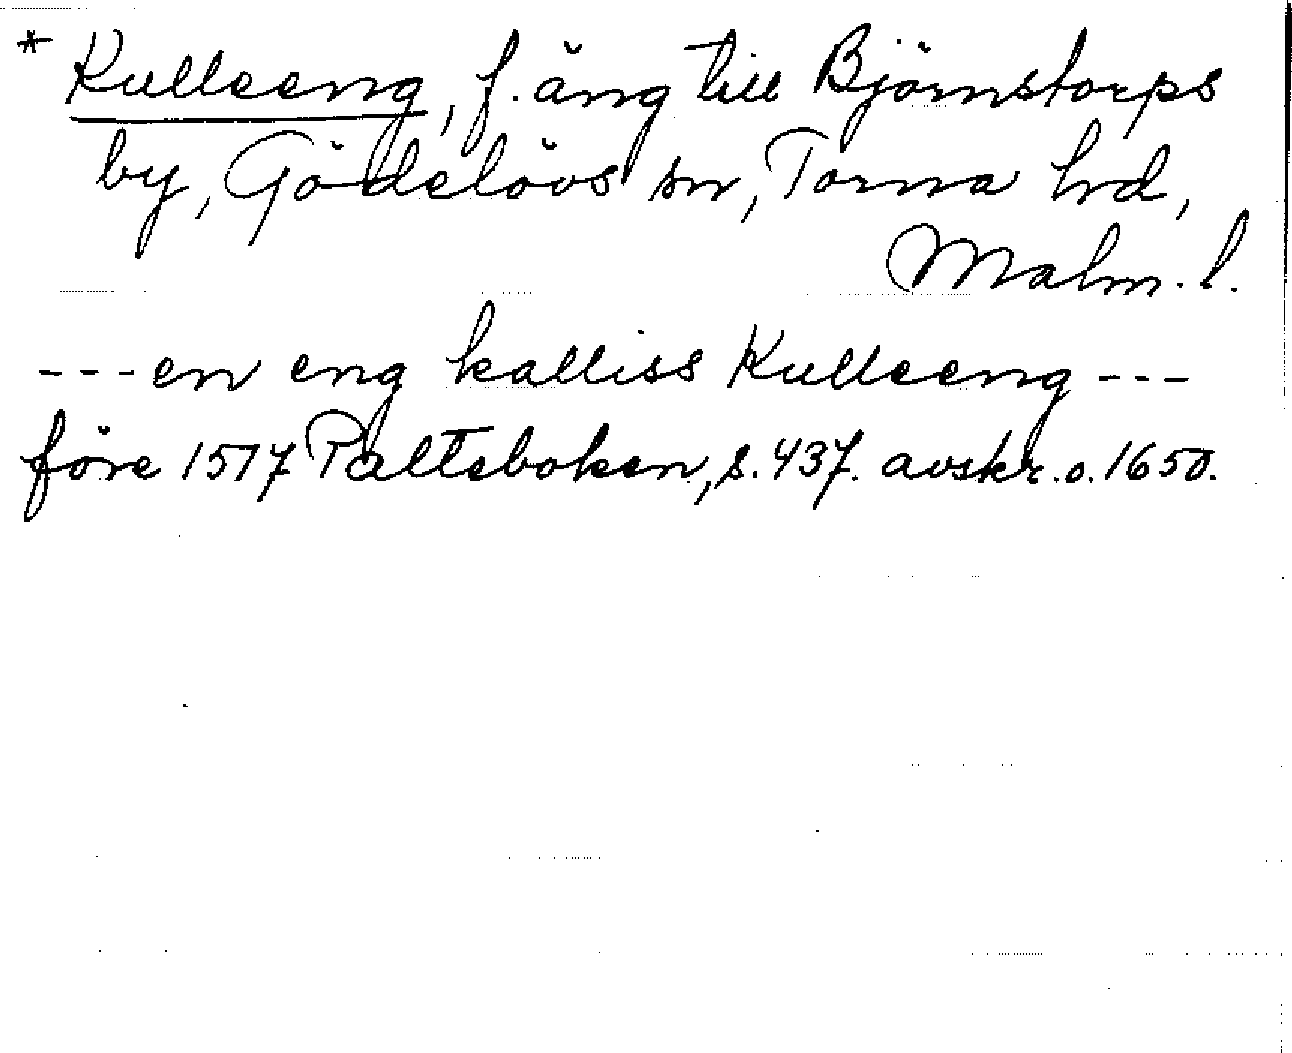 * Kulleeng, f. äng till Björnstorps
by, Gödelövs sn, Torna hd,
Malm. l.
---en eng kalliss Kulleeng---
före 1517 Palteboken, s. 437. avskr. o. 1650.